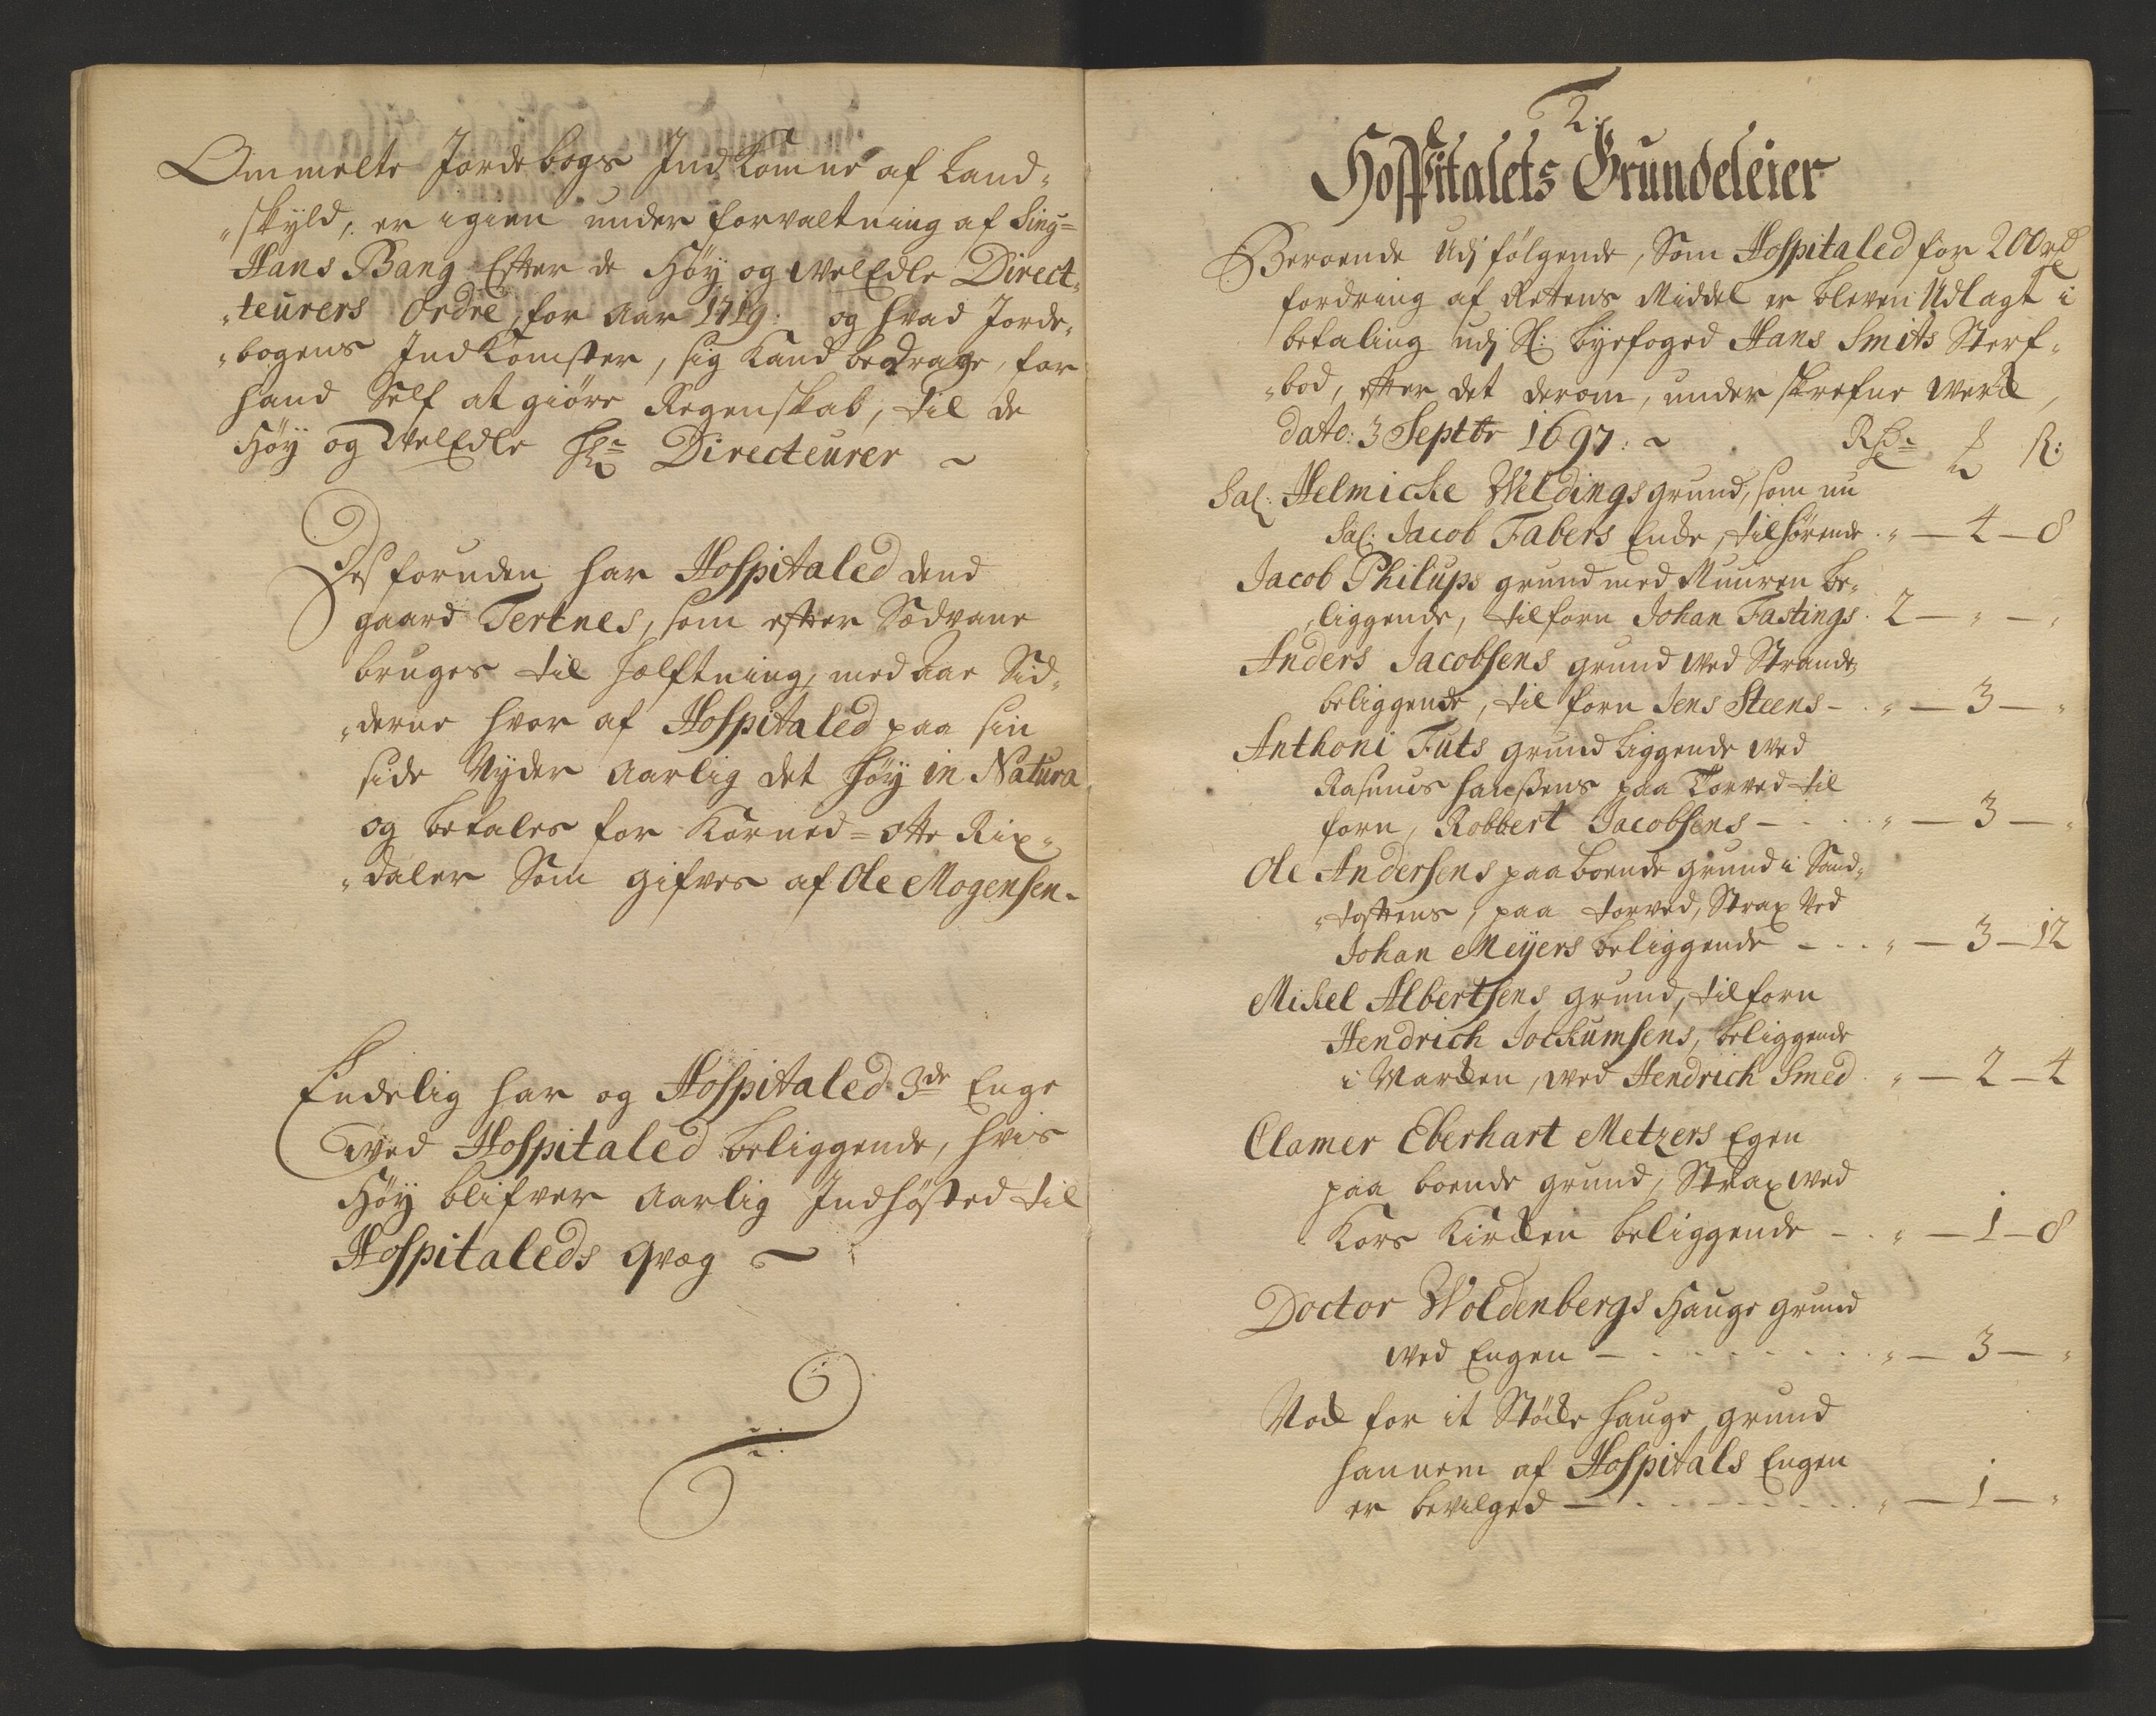 Ommelte Jordebogs Indkomne af Land-
skyld, er igien under forvaltning af Sing=
Hans Bang Efter de Høy og WelEdle Direct-
teurers Ordre, for Aar 1719: og hvad Jorde-
bogens Indkomster, sig kand bedrage, har
hand Self at giøre Regenskab, til de
Høy og WelEdle Hr: Directeurer ~
Desforuden har Hospitaled dend
gaard Tertnes, som efter Sædvane
bruges til hælftning, med Aae Sid-
derne hvor af Hospitaled paa sin
side Nyder Aarlig det høy in Natura
og betales for korned = otte Rix-
daler Som gifves af Ole Mogensen-
Endelig har og Hospitaled 3de Enge
wed Hospitaled beliggende, hvis
Høy blifver Aarlig Indhøsted til
Hospitaleds qvæg ~
2:
Hospitalets Grundeleier
Beroende Udj følgende, Som Hospitaled for 200 rd
fordring af Rettens Middel er bleven Udlagt i
betaling udj Sl: byefoged Hans Smits Sterf-
bod, efter det derom, under skrefne werk,
dato: 3 Septbr 1697: ~ Rdr ₰ ß:
Sal: Helmicke Weldings grund, som nu
Sal: Jacob Fabers Enke, tilhørende . " — 4 — 8
Jacob Philups grund med Muuren be-
liggende, tilforn Johan Fastings . 2 — " — "
Anders Jacobsens grund wed Stranden
beliggende, til forn Jens Steens - . " — 3 — "
Anthoni Futs grund liggende wed
Rasmus hanßens paa Torved til
forn, Robbert Jacobsens - . . . " — 3 — "
Ole Andersens paaboende grund i Sand-
tofftens, paa torved, Strax Ved
Johan Meyers beliggende - . . " — 3 — 12
Mikel Albertsens grund, tilforn
Hendrich Jochumsens, beliggende
i Marken, wed Hendrich Smed . " — 2 — 4
Clamer Eberhart Metzers Egen
paa boende grund, Strax wed
Kors Kirken beliggende - . " — 1 — 8
Doctor Woldenbergs Hauge grund
wed Engen - . . . . . . . " — 3 — "
Nok for it Støcke hauge grund
hannem af Hospitals Engen
er bevilged - . . . . . . . " — 1 — "